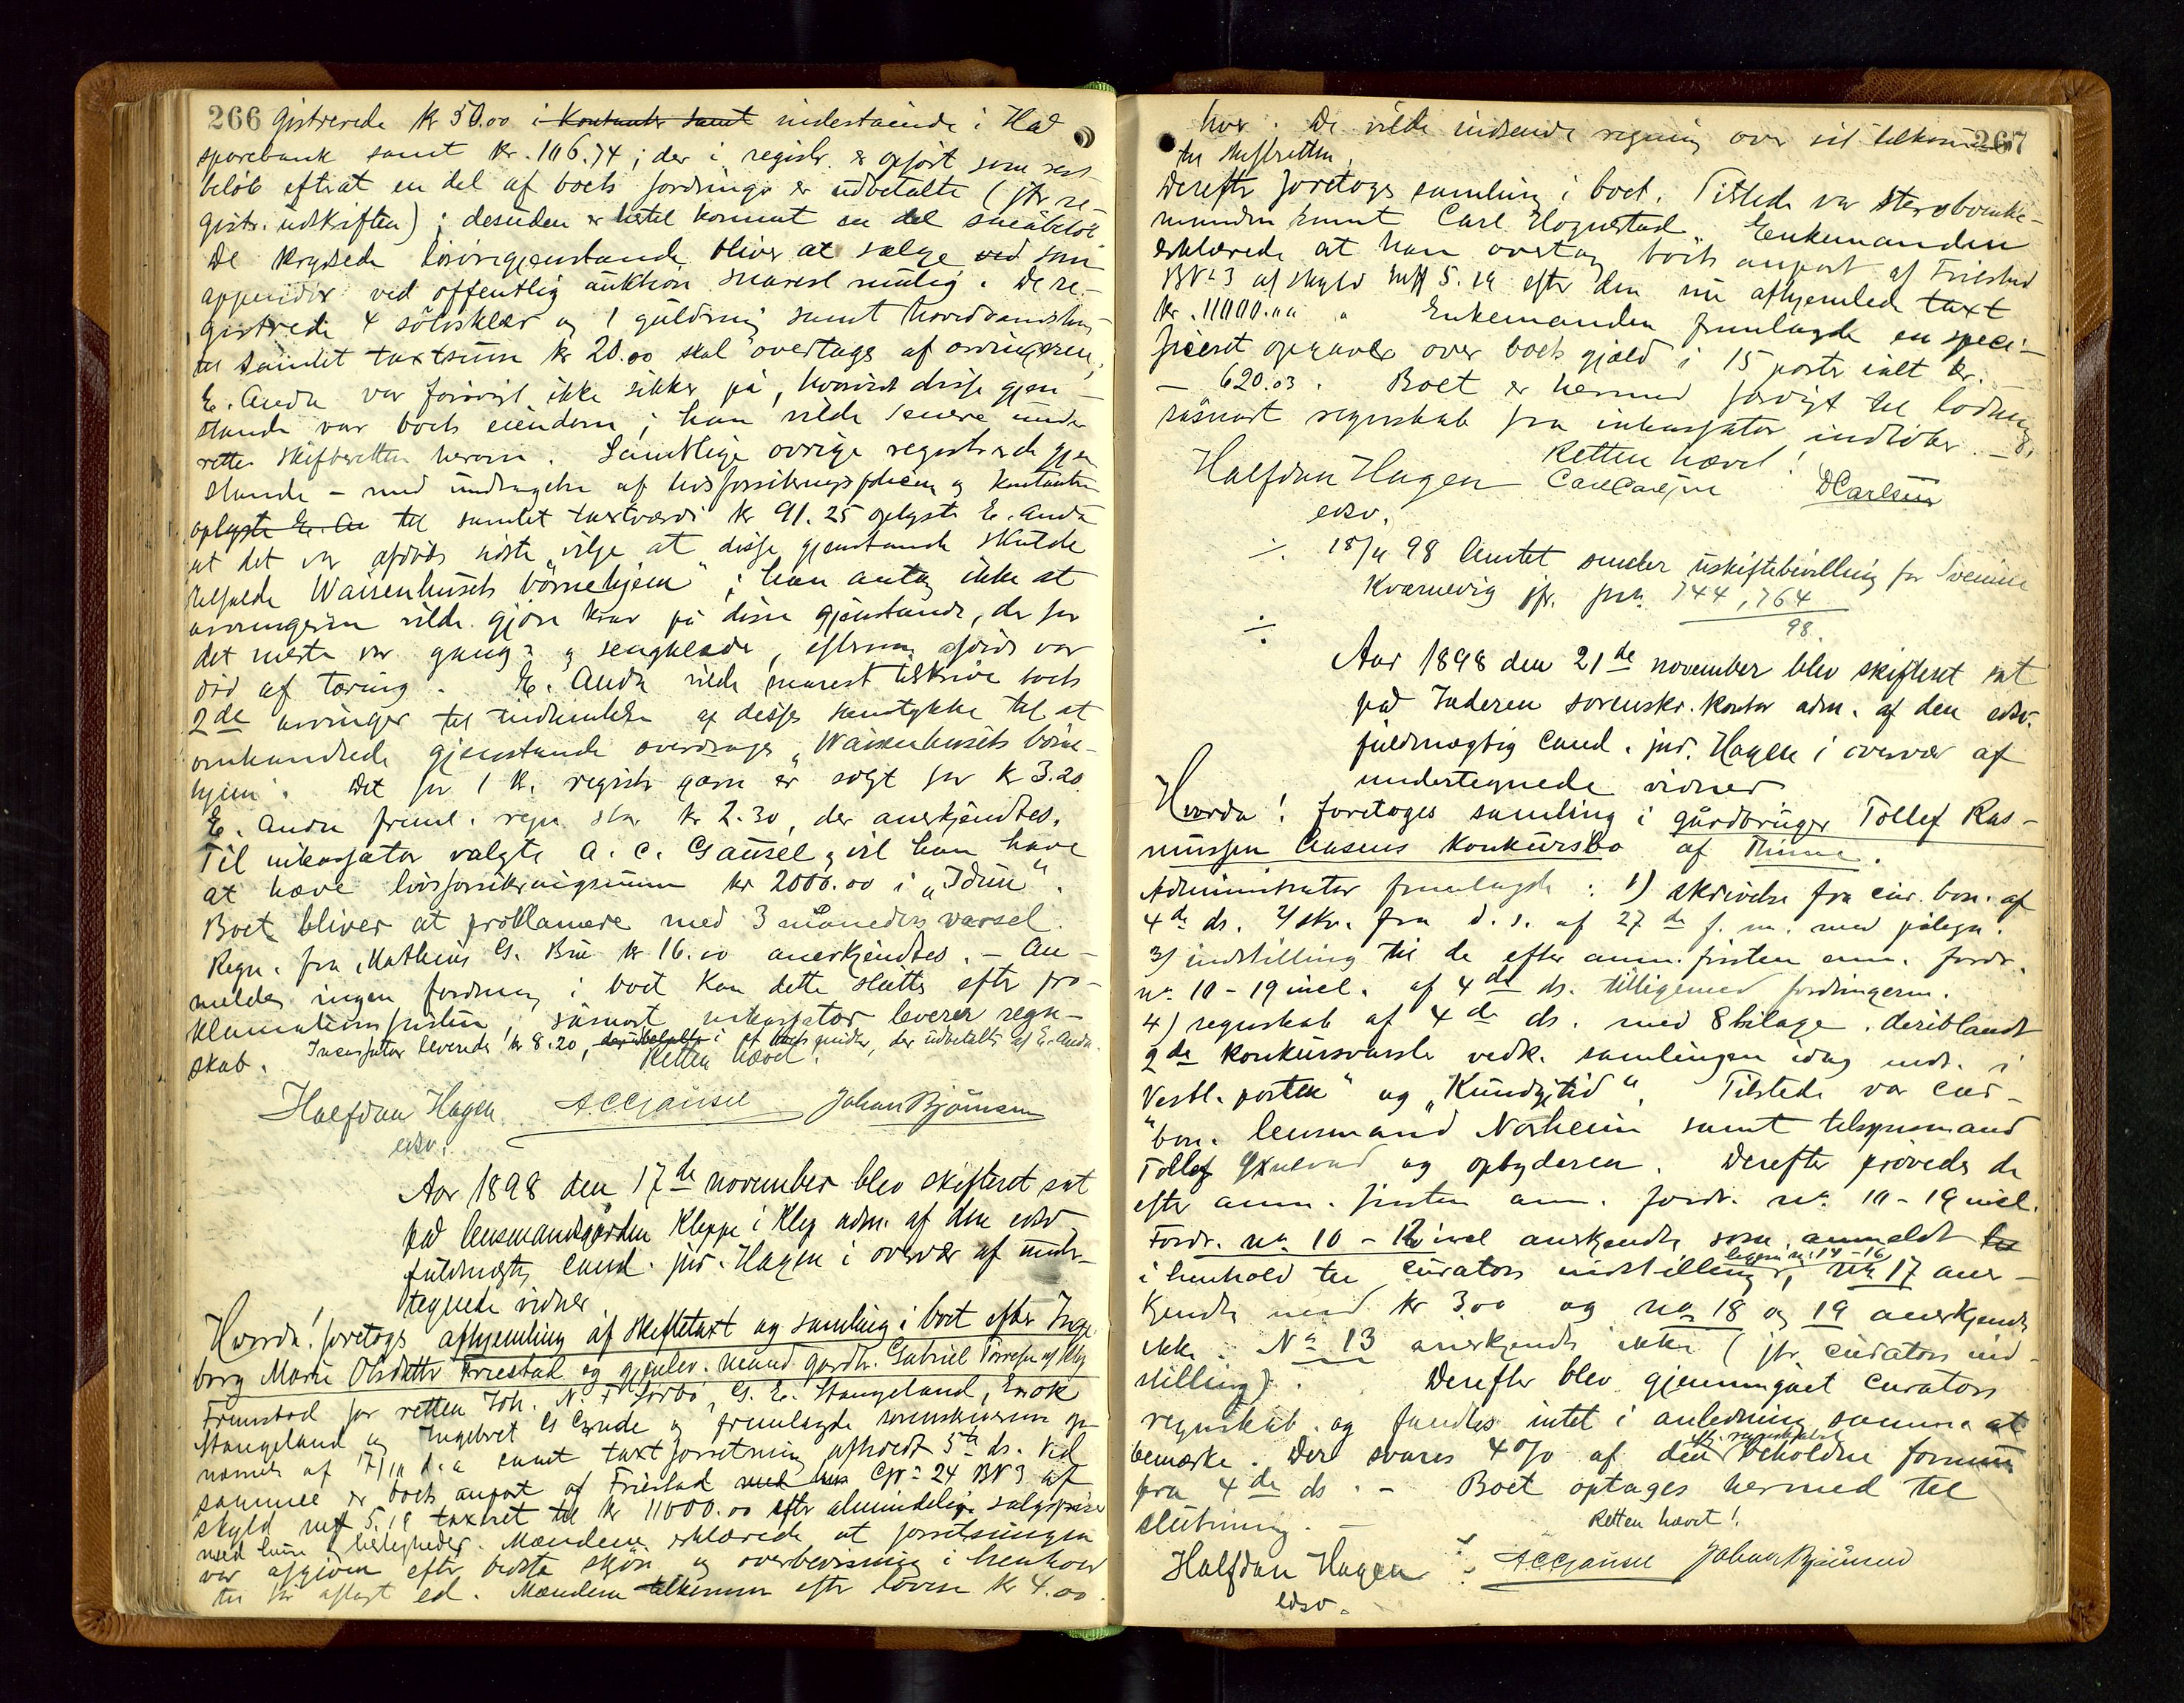 266
gistrerede kr 50.00 i Kontanter samt indestående i Haa
sparebank samt kr. 106.74; der i registr. er opført som rest
beløb efterat en del af boets fordringer er udbetalte (jfr re-
gistr. udskriften); desuden er hertil kommet en del småbeløb.
De krydsede løsøregjenstande bliver at sælge ved som
appendix ved offentlig auktion snarest mulig. De re-
gistrede 4 sølvskeer og 1 guldring samt hovedvandshus
til samlet taxtsum kr 20.00 skal overtages af arvingeren,
E. Anda var forøvrigt ikke sikker på, hvorvidt disse gjen-
stande var boets eiendom; han vilde senere under
rette skifteretten herom. Samtlige øvrige registrerede gjen
stande - med undtagelse af livsforsikringspolicen og kontanter
oplyste E. An til samlet taxtværdi kr 91.25 oplyste E. Anda
at det var afdødes sidste vilje at disse gjenstande skulde
tilfalde Waisenhusets børnehjem"; han antog ikke at
arvingerne vilde gjøre krav på disse gjenstande, der for
det meste var gang- og sengklæde, eftersom afdøde var
død af tæring. E. Anda vilde snarest tilskrive boets
2de arvinger til indhentelse af disses samtykke til at
omhandlede gjenstande overdrages „Waisenhusets børne-
hjem". Det for 1 kr. registr. garn er solgt for kr 3.20
E. Anda freml. regn. stor kr 2.30, der anerkjendtes.
Til inkassator valgtes A. C. Gausel, vil han have
at hæve livsforsikringssummen kr 2000.00 i „Idun".
Boet bliver at proklamere med 3 måneders varsel.
Regn. fra Mathias G. Bru kr 16.00 anerkjendtes. - An-
meldes ingen fordring i boet kan dette sluttes efter pro-
klamationsfristen, såsnart inkassator leverer regn-
skab. Incassator leverede kr 8.20, der udbetaltes i af boets midler, der udbetaltes af E. Anda.
Retten hævet.
Halfdan Hagen ACGausel Johan Bjørnsen
edsv.
Aar 1898 den 17de november blev skifteret sat
på lensmandsgården Kleppe i Klep adm. af den edsv.
fuldmægtig cand. jur. Hagen i overvær af under-
tegnede vidner
Hvorda! foretoges afhjemling af skiftetaxt og samling i boet efter Inge
borg Marie Olsdatter Friestad og gjenlev. mand gårdbr. Gabriel Torresen af Klep
Fremstod for retten Joh. N. Sørbø, G. E. Stangeland, Enok
Stangeland og Ingebret Erga og fremlagde sorenskriverens op
nævnelse af 17/10 d.a samt taxtforretning afholdt 5te ds. ved
samme er boets anpart af Friestad med hus Gno 24 BNo 3 af
skyld mk 5.19 taxeret til kr 11000.00 efter almindelig salgspriser
med huse & herligheder. Mændene erklærede at forretningen
var afgiven efter bedste skjøn og overbevisning i henhold
til før aflagt ed. Mændene tilkommer efter loven kr 4.00
267
hver. De vilde indsende regning over sit tilkomme
til skifteretten.
Derefter foretoges samling i boet. Tilstede var sterboenke-
manden samt Carl Hognestad. Enkemanden
erklærede at han overtog boets anpart af Friestad
BNo 3 af skyld mk 5.19 efter den nu afhjemlede taxt
kr. 11000.00. Enkemanden fremlagde en speci-
ficeret opgave over boets gjæld i 15 poster ialt kr.
- 620.03. Boet er hermed færdigt til lodning
såsnart regnskab fra inkassator indløber.
Retten hævet!
Halfdan Hagen Carl Carlsen DCarlsen
edsv.
÷ 18/11 98 Amtet sender uskiftebevilling for Svenine
Kvernevig jfr. jrn. 744, 764
98.
÷
Aar 1898 den 21de november blev skifteret sat
på Jæderen sorenskr. kontor adm. af den edsv.
fuldmægtig cand. jur. Hagen i overvær af
undertegnede vidner
Hvorda! foretoges samling i gårdbruger Tollef Ras-
mussen Aasens konkursbo af Thime.
Administrator fremlagde: 1) skrivelse fra cur. bon. af
4de ds. 2/ skr. fra d. s. af 27de f. m. med påtegn.
3/ indstilling til de efter anm. fristen anm. fordr.
no. 10-19 incl. af 4de ds. tilligemed fordringerne.
4) regnskab af 4de ds. med 8 bilage. deriblandt
2de konkursvarsler vedk. samlingen idag indr. i
Vestl. posten" og „Kundgjtid". Tilstede var cur-
bon. lensmand Norheim samt tilsynsmand
Tollef og opbyderen. Derefter prøvedes de
efter anm. fristen anm. fordr. no. 10-19 incl.
Fordr. no. 10-12 incl anerkjendtes som anmeldt
i henhold til curators indstilling, ligesaa no 14-16, no 17 aner-
kjendtes med kr 300 og no 18 og 19 anerkjendtes
ikke. No 13 anerkjendtes ikke (jfr. curators ind-
stilling). Derefter blev gjennemgået curators
regnskab. og fandtes intet i anledning samme at
bemærke. Der svares 4% af den iflg. regnskabet beholdne formue
fra 4de ds. - Boet optages hermed til
slutning. -
Retten hævet!
Halfdan Hagen ACGausel Johan Bjørnsen
edsv.